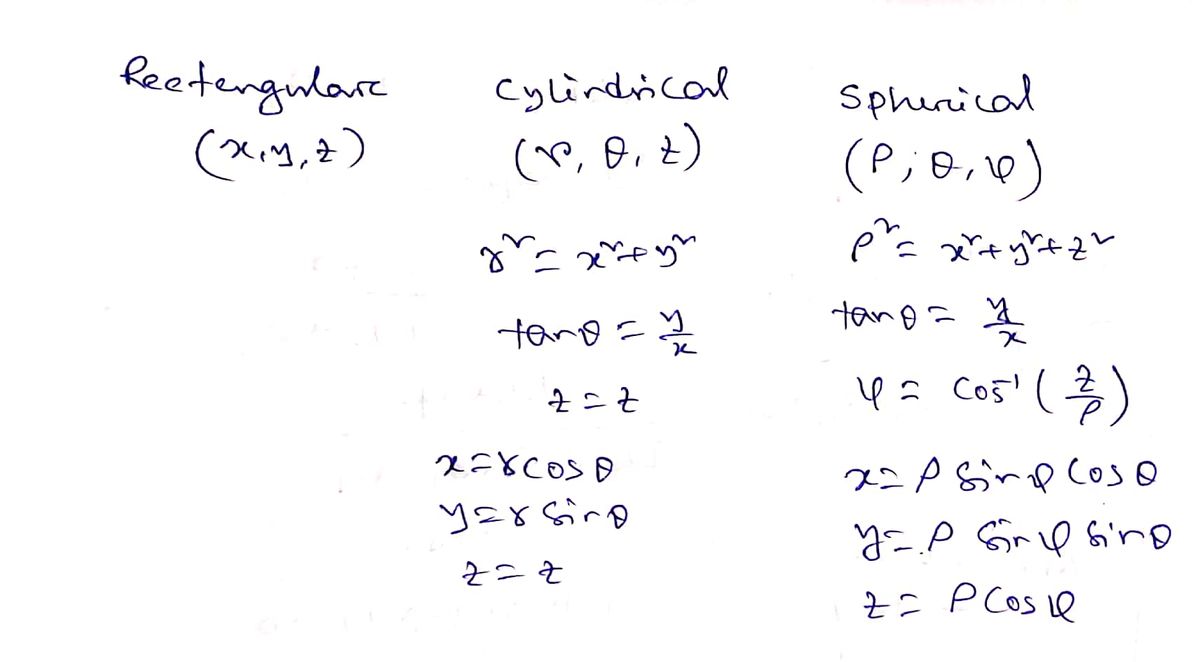 Rectengular
(x, y, z)
Cylindrical
(r, θ, z)
r² = x² + y²
tanθ = y/x
z = z
x = r cos θ
y = r sin θ
z = z
Spherical
(ρ, θ, φ)
ρ² = x² + y² + z²
tan θ = y/x
φ = cos⁻¹ (z/ρ)
x = ρ sin φ cos θ
y = ρ sin φ sin θ
z = ρ cos φ